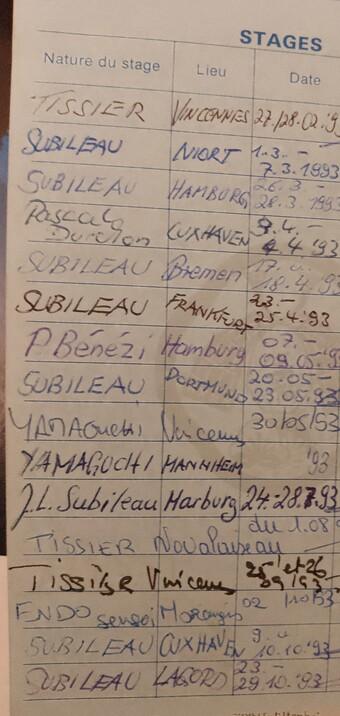 STAGES
Nature du stage Lieu Date
TISSIER VINCENNES 27./28.02.'9
SUBILEAU NIORT 1.3.-
7.3.1993
SUBILEAU HAMBURG 26.3.-
28.3.1993
Pascal CUXHAVEN 4.'93
SUBILEAU Bremen 17.
18.4.93
SUBILEAU FRANKFURT 23.-
25.4.'93
P. Bénézi Hamburg 07.-
09.05.9
SUBILEAU DORTMUND 20.05-
23.05.93
YAMAGUCHI 30/05/93
YAMAGUCHI MANNHEIM '93
J.L. Subileau Harburg 24.-28.7.93
TISSIER du 1.08
TISSIER 25 et 26
09/93
ENDO sensei Morangis 02 /10/93
SUBILEAU CUXHAVEN 9.
10.10.'93
SUBILEAU LAGORD 23 -
29.10.'93